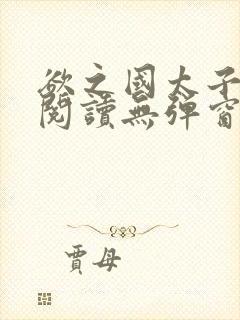 欲之國太子
閱讀無彈窗
賈母